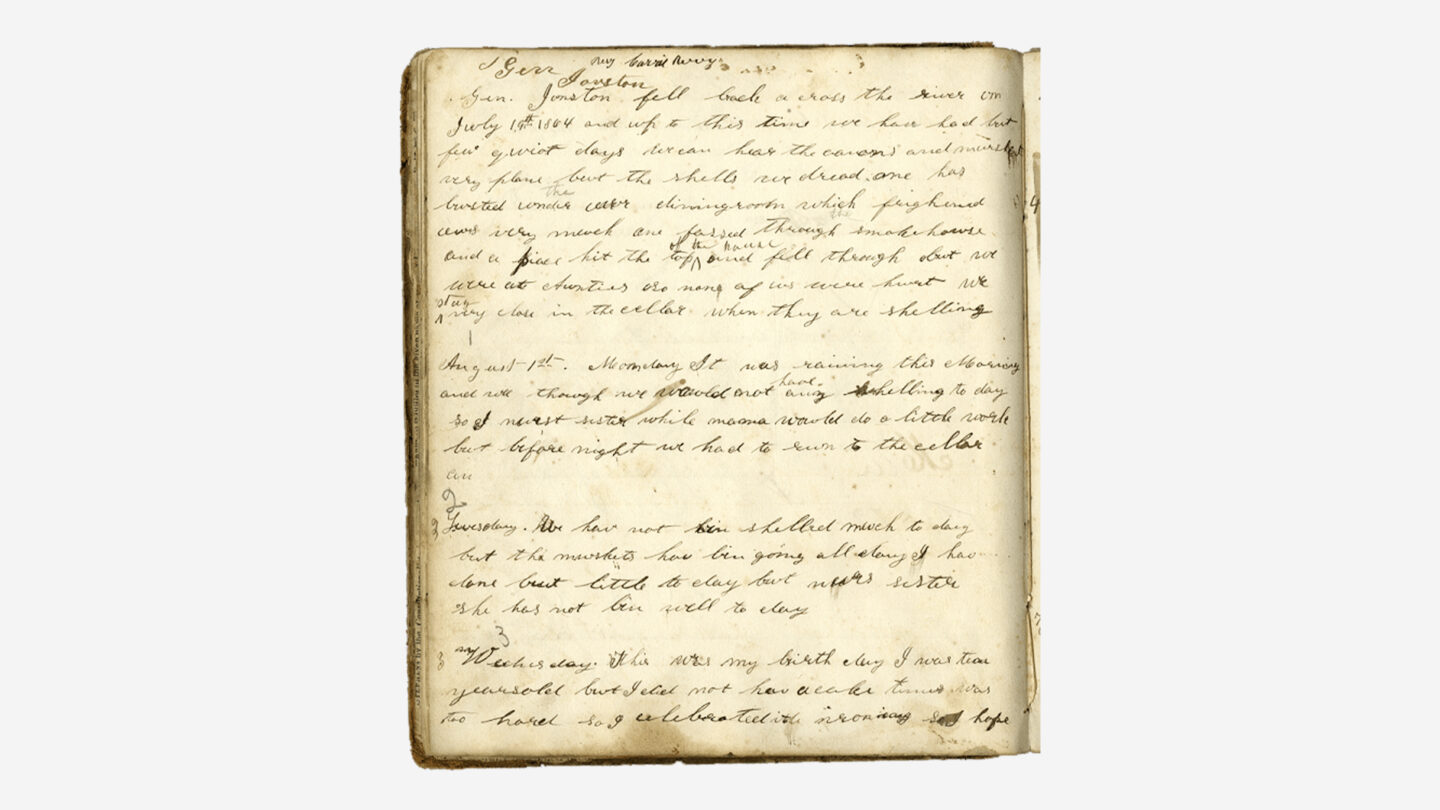 Genr
Jonston
Gen. Jonston fell back a cross the river on
July 19th 1864 and up to this time we have had but
few quiot days we can hear the canons and muskets
very plane but the shells we dread one has
busted under the diningroom which frighened
us very much one passed through the smokehouse
and a piece hit the top of the house and fell through but we
were at Aunties so none of us were hurt we
stay very close in the cellar when they are shelling
1
August 1st. Monday It was raining this Morning
and we though we would not have any shelling to day
so I nurst sister while mama would do a little work
but before night we had to run to the cellar
an
2
Tuesday. We hav not bin shelled much to day
but the muskets hav bin going all day I hav
done but little to day but nurs sister
she has not bin well to day
3
3 Wednesday. This was my birth day I was ten
yearsold but I did not hav a cake times was
too hard so I celebrated with ironing so I hope